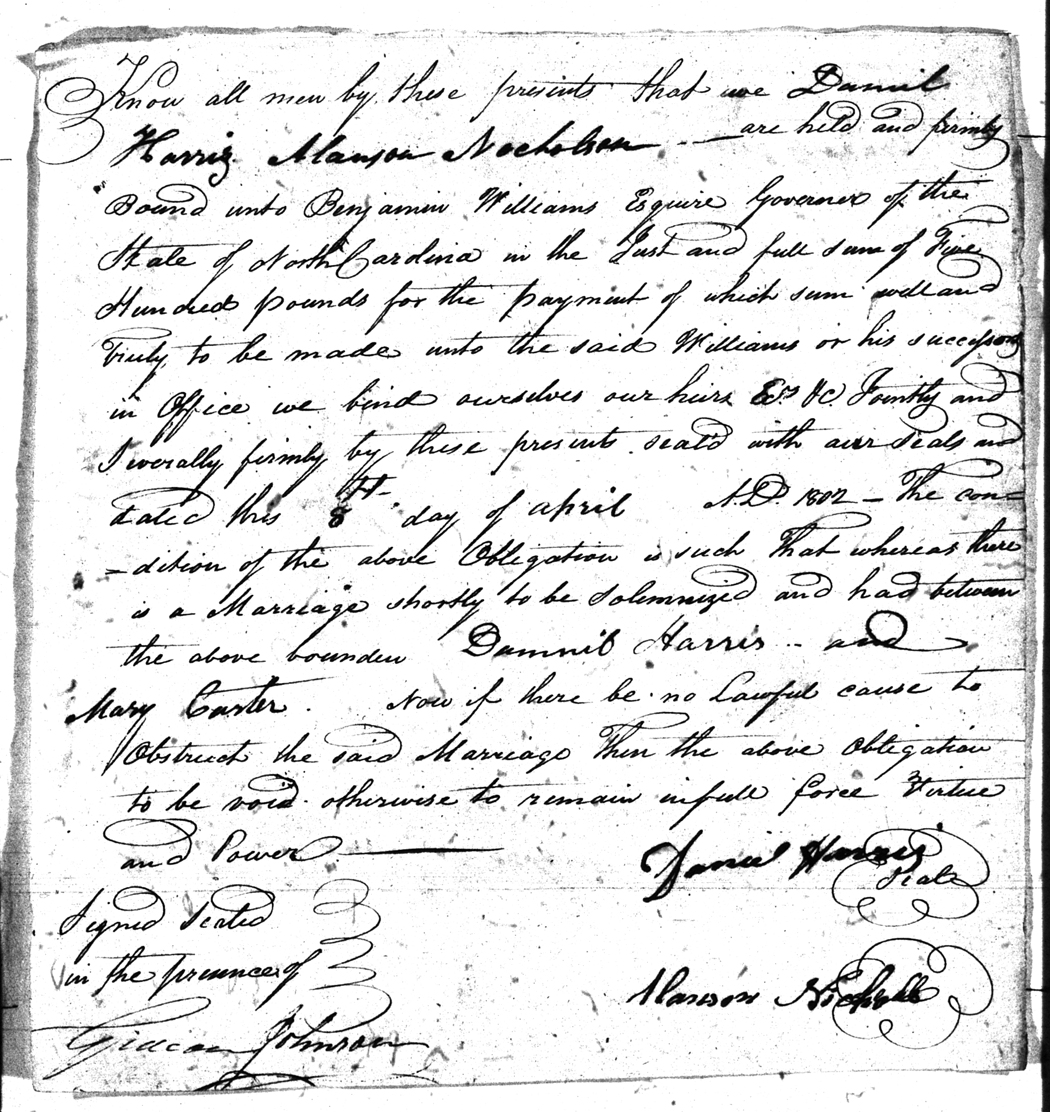 Know all men by these presents that we Daniel
Harris Alanson Nocholson are held and firmly
Bound unto Benjamin Williams Esquire Governer of the
State of North Carolina in the Just and full sum of Five
Hundred pounds for the payment of which sum well and
Truly to be made unto the said Williams or his successors
in Office we bind ourselves our heirs &c Jointly and
Severally firmly by these presents seald with our seals and
dated this 8th day of april A.D. 1802 – The con=
=dition of the above Obligation is such That whereas there
is a Marriage shortly to be Solemnized and had between
the above bounden Danniel Harris and
Mary Carter. Now if there be no Lawful cause to
Obstruct the said Marriage Then the above Obligation
to be void otherwise to remain in full force Virtue
and Power
Daniel Harris
Seale
Signed Sealed
in the presence of
Alanson
Gideon Johnson